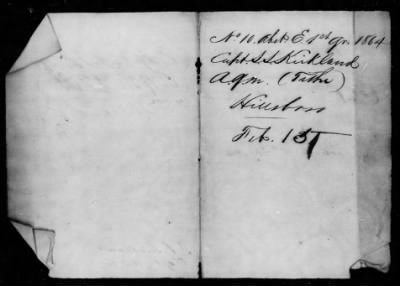 No 10. Abst E 1st qr. 1864
Capt. S. S. Kirkland
A.Q.M. (Tithe)
Hillsboro
Feb. 15